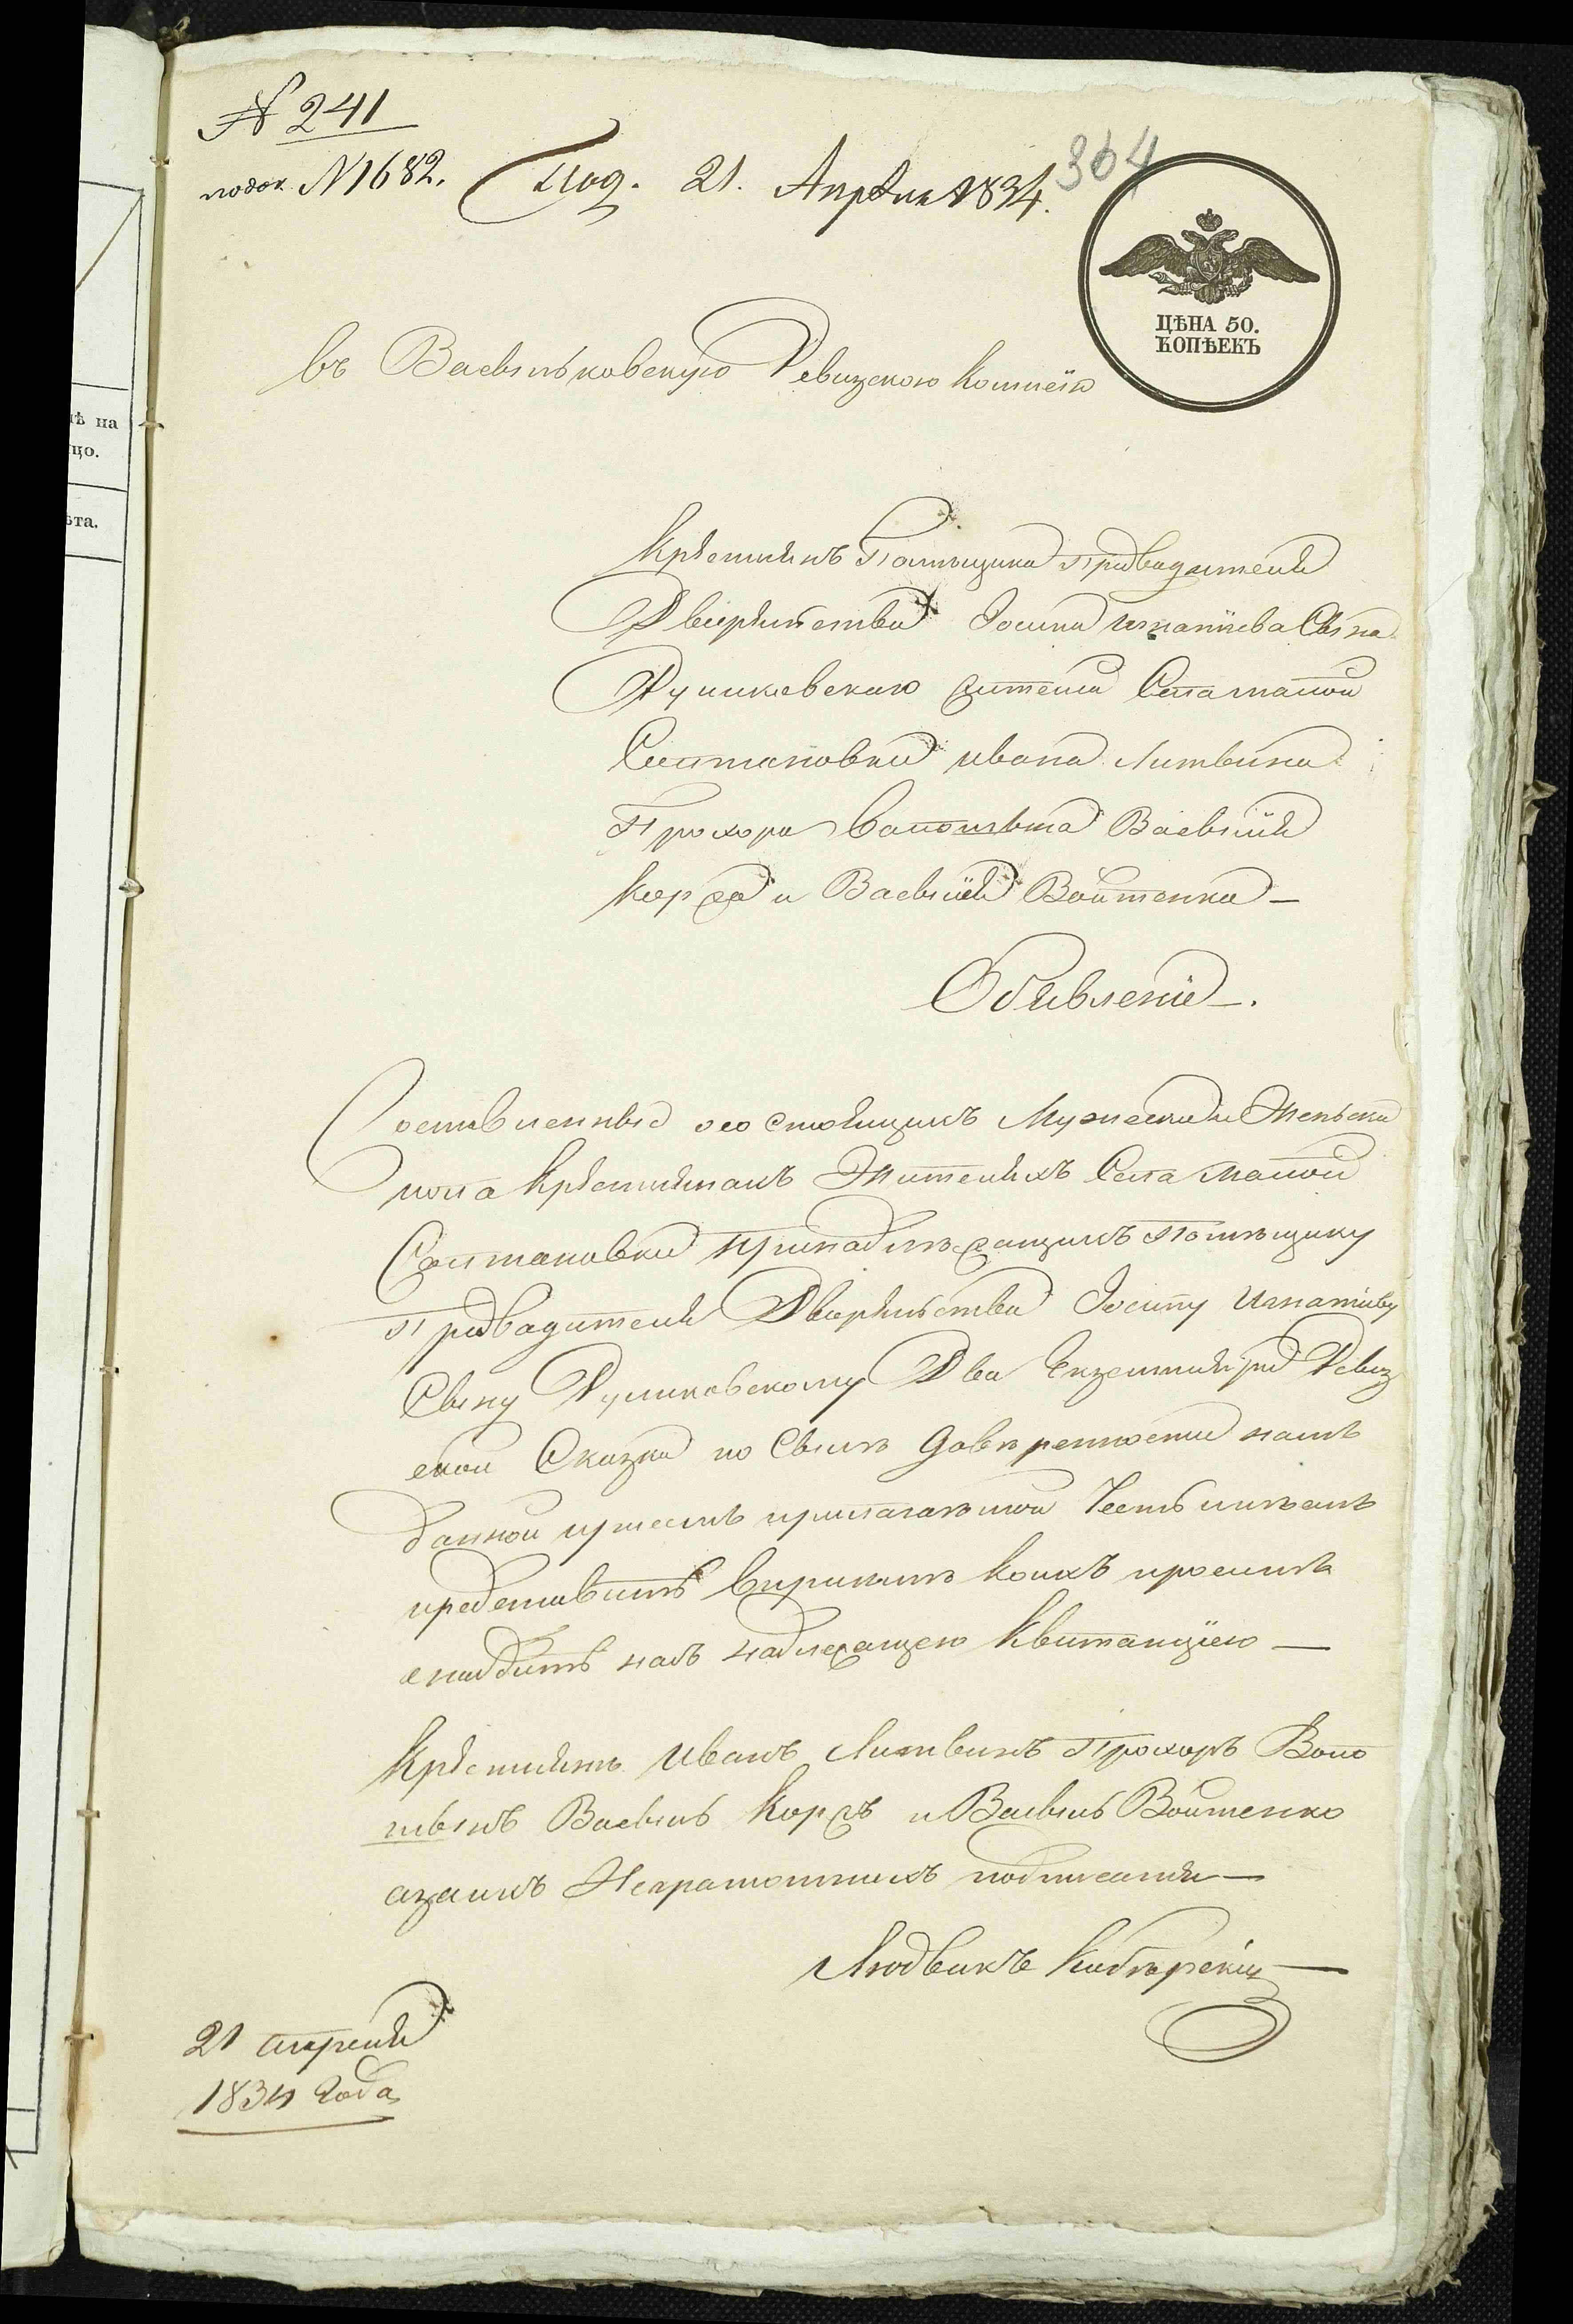 № 241
подок. №1682. Под. 21. Апреля 1834.
364
ЦѢНА 50.
КОПѢЕКЪ
въ Васвильковскую Ревизскою Комисїю
Крестянъ Помѣщика Предвадителя
Дворянства Іосипа Игнатіева Сына
Рушковскаго жителей Села малой
Солтановки ивана Литвина
Прохора Вапа Васвилія
Коржа и Васвилія Войтенка —
Обявленіе —.
Составленные о состоящихъ Мужеска и Женьска
пола крестянахъ Жителяхъ Села малой
Солтановки принадлѣжащихъ Помѣщику
Предвадителя Дворянства Іосипу Игнатіеву
Сыну Рушковскому Два Екземпляри Ревиз
ской Сказки по Силѣ Довѣренности намъ
данной присемъ прилагаемой Честь имѣемъ
представить впринятіи коихъ просимъ
снабдить насъ надлежащею Квитанцїею —
Крестяне иванъ Литвинъ Прохоръ Вопо
Васвиль Коржъ и Васвиль Войтенко
азаихъ Неграмотнихъ подписался —
Людвикъ
21 апреля
1834 Года
ѣ на
цо.
ѣта.